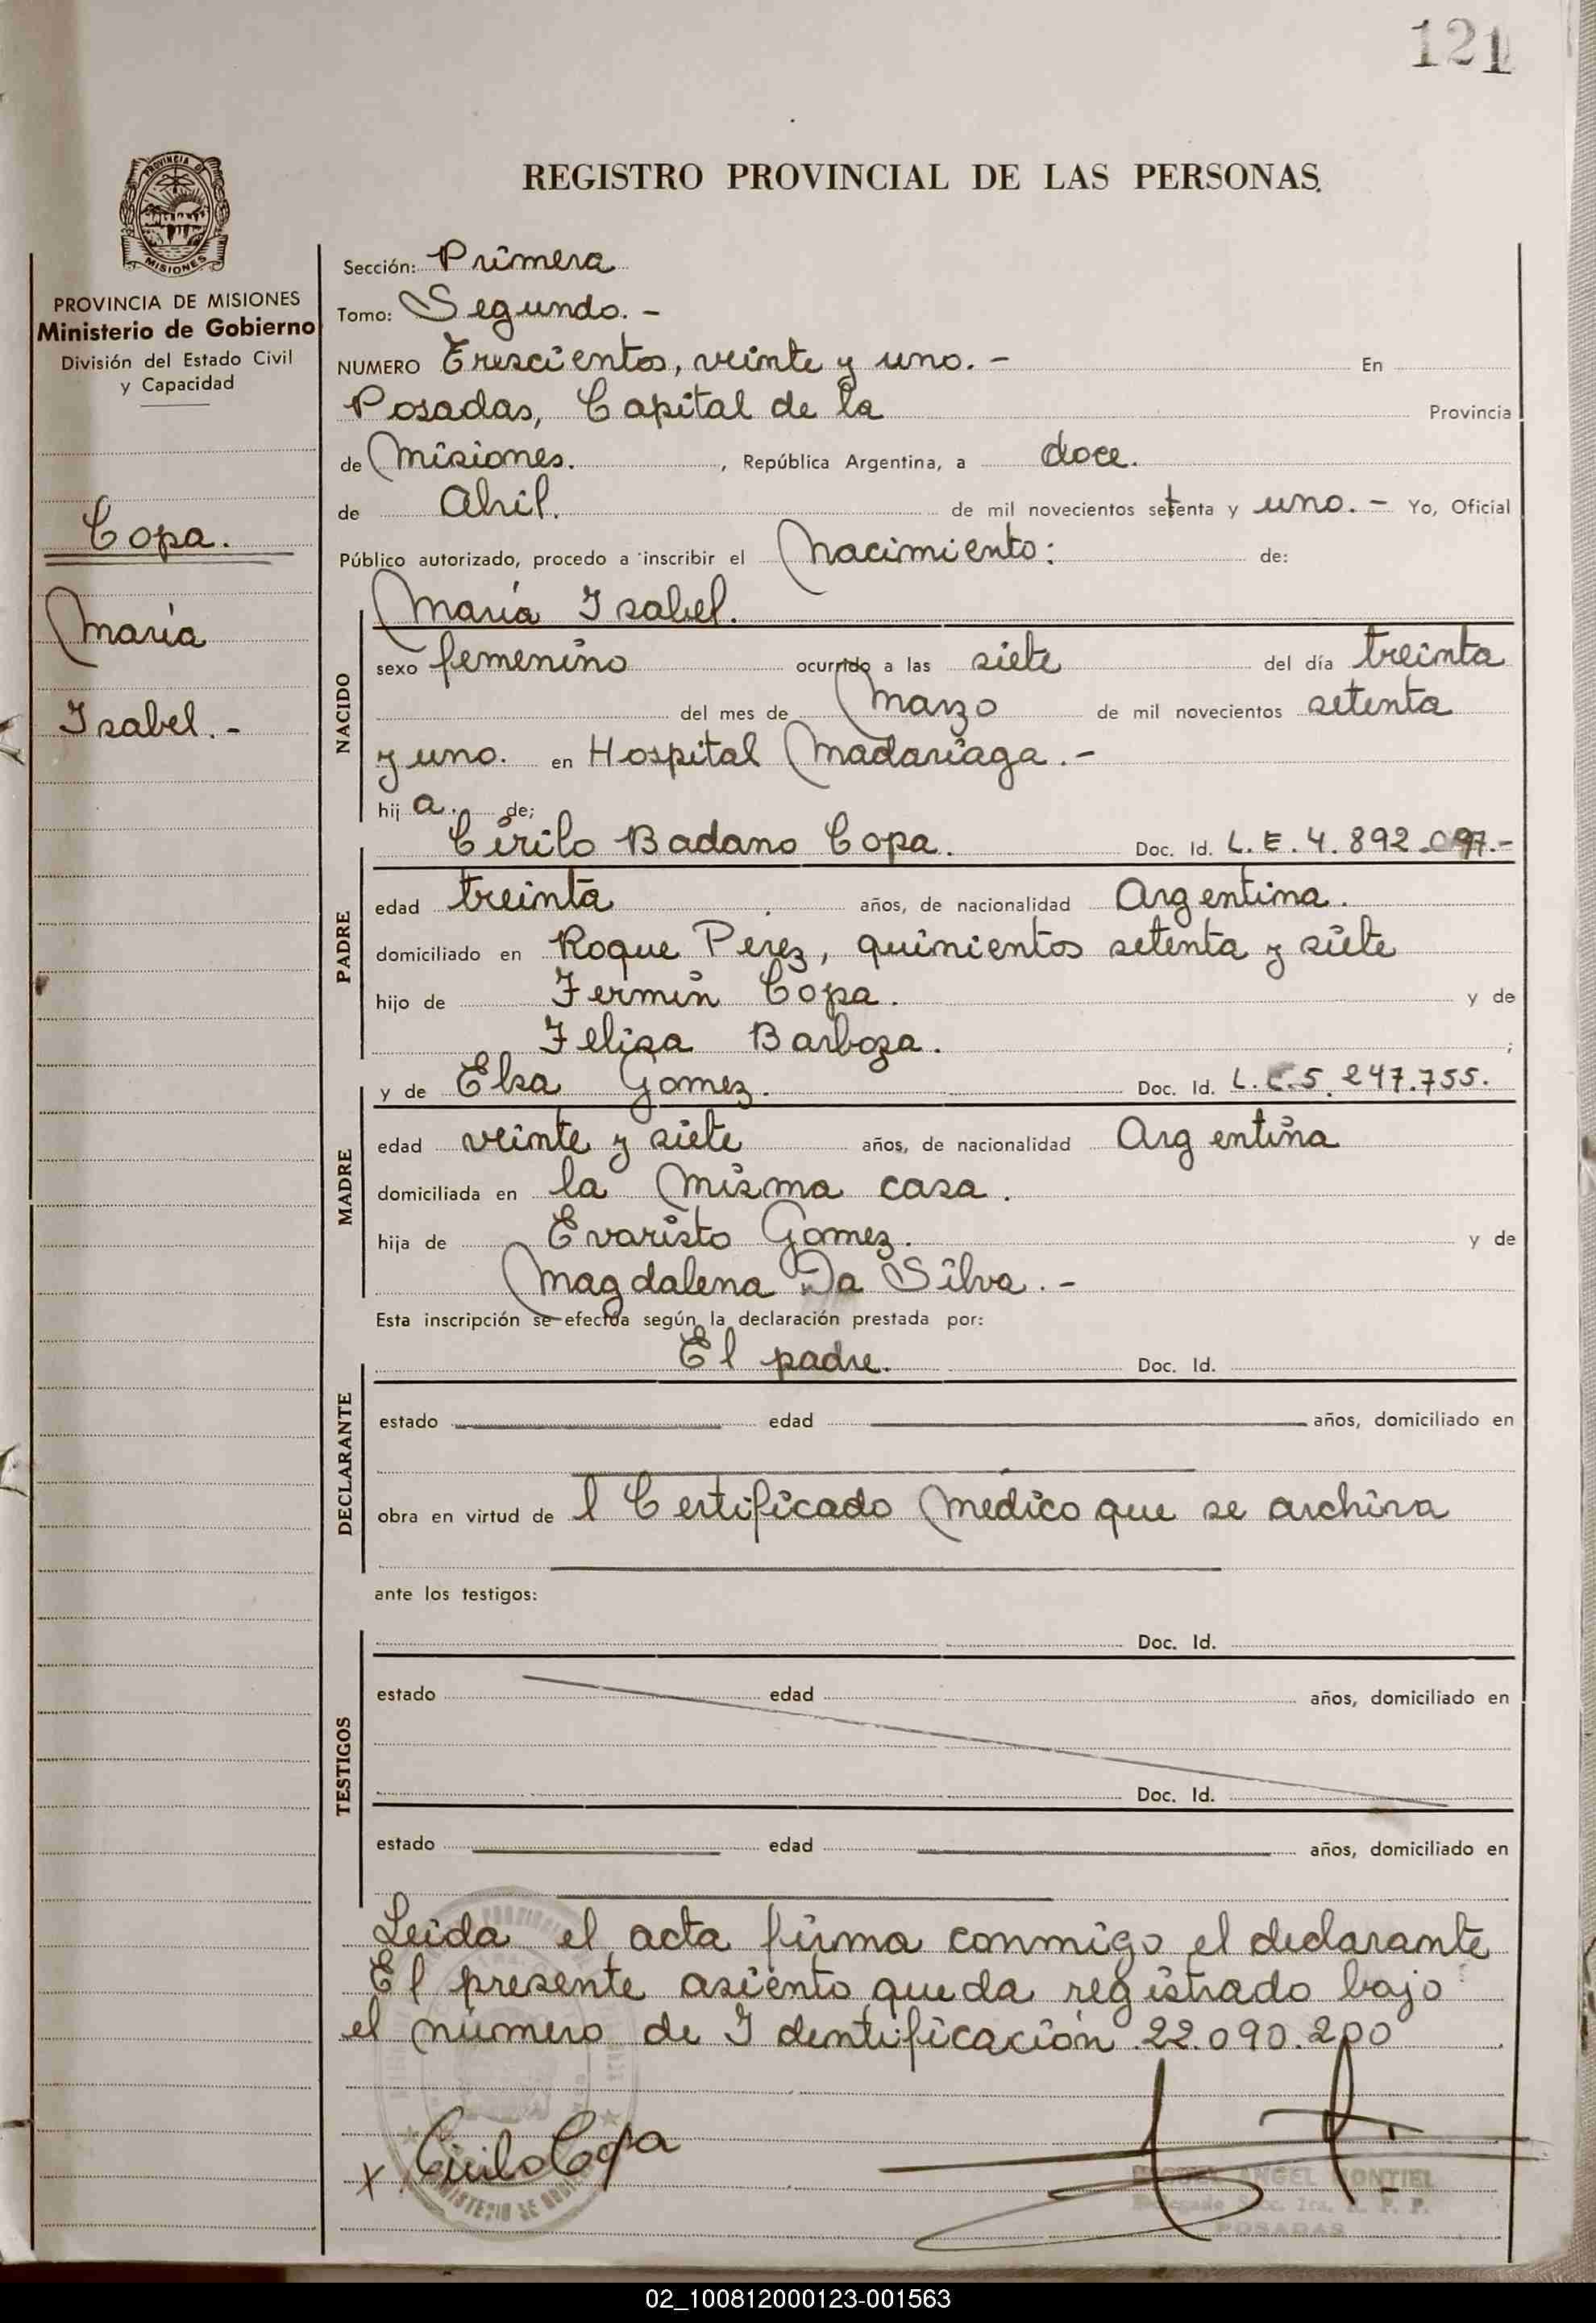 121
REGISTRO PROVINCIAL DE LAS PERSONAS.
PROVINCIA DE MISIONES
PROVINCIA DE MISIONES
Ministerio de Gobierno
División del Estado Civil
y Capacidad
Copa.
María
Isabel. -
Sección: Primera
Tomo: Segundo. -
NUMERO Trescientos, veinte y uno. - En
Posadas, Capital de la Provincia
de Misiones. , República Argentina, a doce.
de Abril. de mil novecientos setenta y uno. - Yo, Oficial
Público autorizado, procedo a inscribir el Nacimiento: de:
María Isabel.
NACIDO
sexo femenino ocurrido a las siete del día treinta
del mes de Marzo de mil novecientos setenta
y uno. en Hospital Madariaga. -
hij a. de;
Cirilo Badano Copa. Doc. Id. L. E. 4. 892. 097. -
PADRE
edad treinta años, de nacionalidad Argentina.
domiciliado en Roque Perez, quinientos setenta y siete
hijo de Fermín Copa. y de
Felisa Barboza. ;
y de Elsa Gomez. Doc. Id. L. C. 5. 247.755.
MADRE
edad veinte y siete años, de nacionalidad Argentina
domiciliada en la misma casa.
hija de Evaristo Gomez. y de
Magdalena Da Silva. -
Esta inscripción se efectúa según la declaración prestada por:
El padre. Doc. Id.
DECLARANTE
estado edad años, domiciliado en
obra en virtud de l Certificado Medico que se archiva
ante los testigos:
Doc. Id.
TESTIGOS
estado edad años, domiciliado en
Doc. Id.
estado edad años, domiciliado en
Leida el acta firma conmigo el declarante
El presente asiento queda registrado bajo
el número de Identificación 22.090.200
x Cirilo Copa
MIGUEL ANGEL MONTIEL
Delegado Secc. 1ra. R. P. P.
POSADAS
02_100812000123-001563